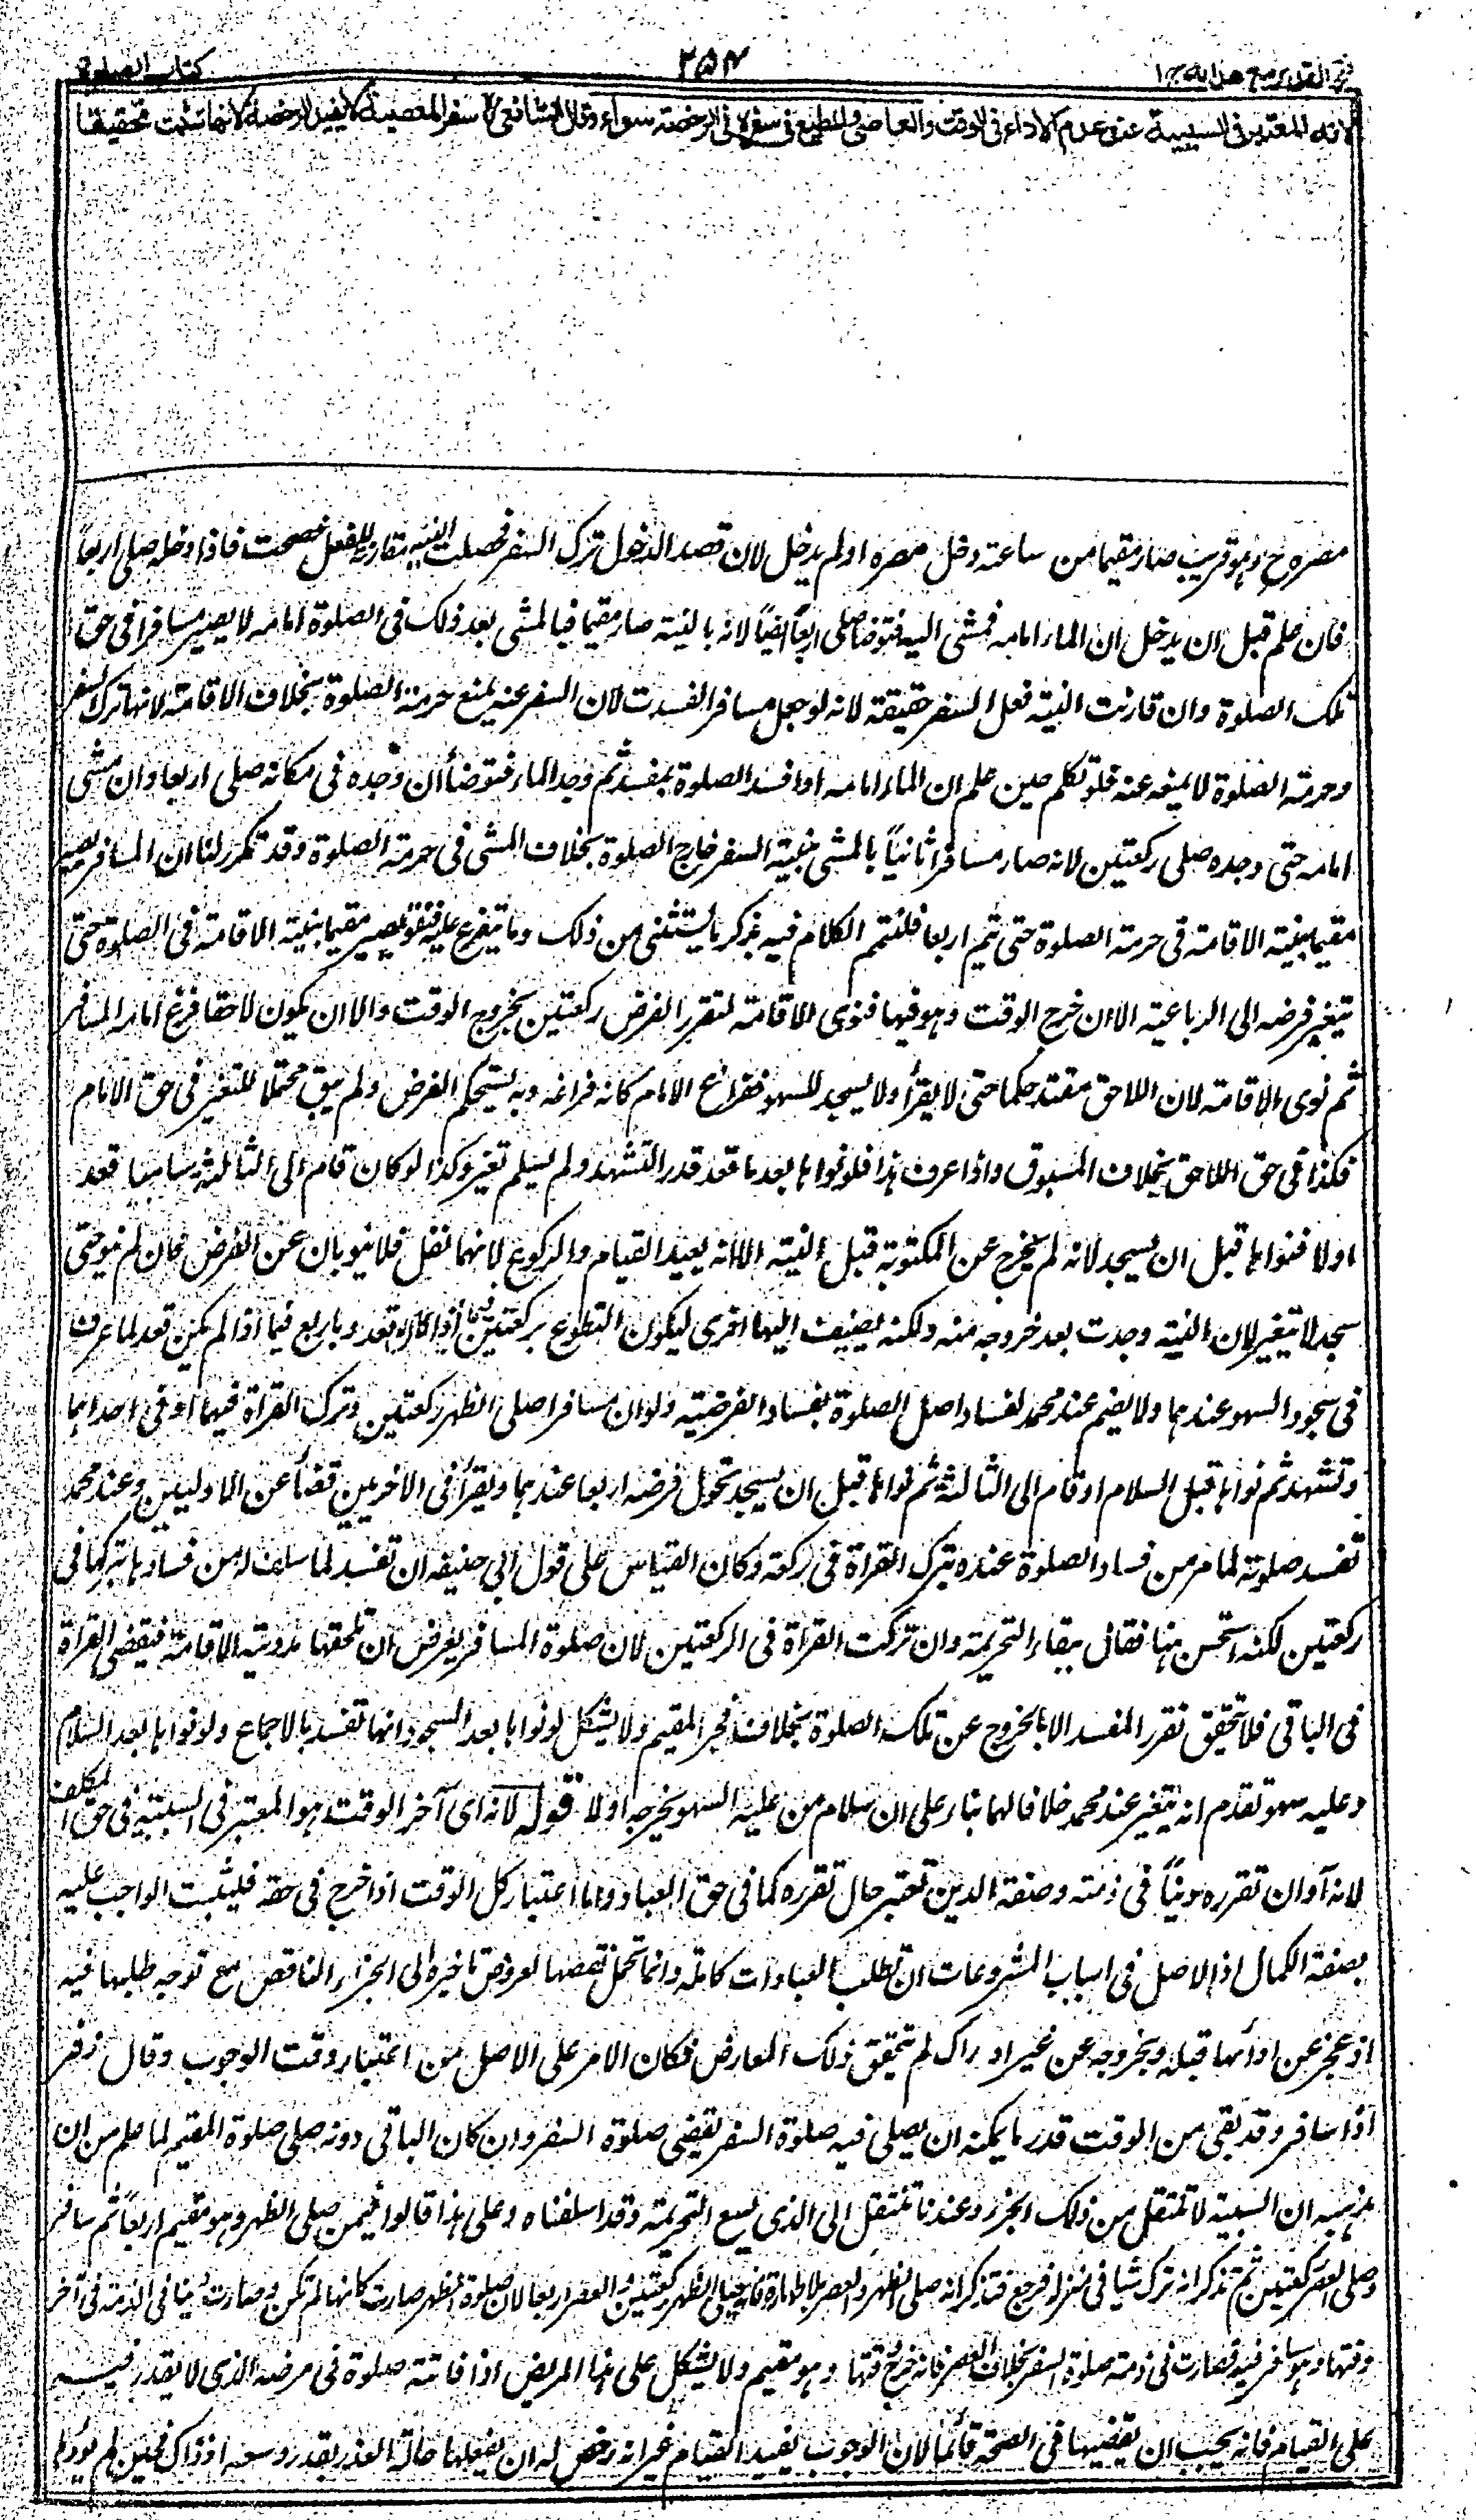 فتح القدير مع هدايه ج ١
٢٥٤
كتاب الصلوة
لانه المعتبر فى السببية عند عدم الاداء فى الوقت والعاصى والمطيع فى سفره فى الرخصة سواء وقال الشافعى سفر المعصية لا يفيد الرخصة لانها تثبت تخفيفا
مصره ح وهو قريب صار مقيما من ساعته دخل مصره او لم يدخل لان قصد الدخول ترك السفر فحصلت النية مقارنة للفعل فصحت فاذا دخله صلى اربعا
فان علم قبل ان يدخل ان الماء امامه فمشى اليه فتوضأ صلى اربعا ايضا لانه بالنية صار مقيما فبالمشى بعد ذلك فى الصلوة امامه لا يصير مسافرا فى حق
تلك الصلوة وان قارنت النية فعل السفر حقيقة لانه لو جعل مسافرا لفسدت لان السفر عنه يمنع حرمة الصلوة بخلاف الاقامة لانها ترك السفر
وحرمة الصلوة لا يمنعه عنه فلو تكلم حين علم ان الماء امامه او افسد الصلوة بمفسد ثم وجد الماء فتوضأ ان وجده فى مكانه صلى اربعا وان مشى
امامه حتى وجده صلى ركعتين لانه صار مسافرا ثانيا بالمشى بنية السفر خارج الصلوة بخلاف المشى فى حرمة الصلوة وقد تكرر لنا ان المسافر يصير
مقيما بنية الاقامة فى حرمة الصلوة حتى يتم اربعا فلنتمم الكلام فيه بذكر ما يستثنى من ذلك وما يتفرع عليه فنقول يصير مقيما بنية الاقامة فى الصلوة حتى
يتغير فرضه الى الرباعية الا ان خرج الوقت وهو فيها فنوى الاقامة لتقرر الفرض ركعتين بخروج الوقت والا ان يكون لاحقا فرغ امامه المسافر
ثم نوى الاقامة لان اللاحق مقتد حكما حتى لا يقرأ ولا يسجد للسهو ففراغ الامام كانه فراغه وبه يستحكم الفرض ولم يبق محتملا للتغير فى حق الامام
فكذا فى حق اللاحق بخلاف المسبوق واذا عرف هذا فلو نواها بعد ما قعد قدر التشهد ولم يسلم تغير وكذا لو كان قام الى الثالثة ساهيا قعد
اولا فنواها قبل ان يسجد لانه لم يخرج عن المكتوبة قبل النية الا انه يعيد القيام والركوع لانهما نفل فلا ينوبان عن الفرض فان لم ينو حتى
سجد لا يتغير لان النية وجدت بعد خروجه منه ولكنه يضيف اليها اخرى ليكون التطوع بركعتين فيما اذا كان قعد وباربع فيما اذا لم يكن قعد لما عرف
فى سجود السهو عندهما ولا يضم عند محمد لفساد اصل الصلوة بفساد الفرضية ولو ان مسافرا صلى الظهر ركعتين وترك القراة فيهما او فى احداهما
وتشهد ثم نواها قبل السلام او قام الى الثالثة ثم نواها قبل ان يسجد تحول فرضه اربعا عندهما ويقرأ فى الاخريين قضأ عن الاوليين وعند محمد
تفسد صلوته لما مر من فساد الصلوة عنده بترك القراة فى ركعة وكان القياس على قول ابى حنيفه ان تفسد لما سلف له من فسادها بتركها فى
ركعتين لكنه استحسن هنا فقال ببقاء التحريمة وان تركت القراة فى الركعتين لان صلوة المسافر بعرض ان تلحقها مدوية الاقامة فيقضى القراة
فى الباقى فلا تحقق تقرر المفسد الا بالخروج عن تلك الصلوة بخلاف فجر المقيم ولا يشكل لو نواها بعد السجود انها تفسد بالاجماع ولو نواها بعد السلام
وعليه سهو تقدم انه يتغير عند محمد خلافا لهما بناء على ان سلام من عليه السهو يخرجه او لا قوله لانه اى آخر الوقت هو المعتبر فى السببية فى حق المكلف
لانه آوان تقرره دينا فى ذمته وصفة الدين تعتبر حال تقرره كما فى حق العباد واما اعتبار كل الوقت اذا خرج فى حقه فليثبت الواجب عليه
بصفة الكمال اذ الاصل فى اسباب المشروعات ان تطلب العبادات كاملة وانما تحمل نقصها لعروض تاخيره الى الجزء الناقص مع توجه طلبها فيه
اذ عجز عن ادائها قبله وبخروجه عن غير ادراك لم يتحقق ذلك المعارض فكان الامر على الاصل من اعتبار وقت الوجوب وقال زفر
اذا سافر وقد بقى من الوقت قدر ما يمكنه ان يصلى فيه صلوة السفر يقضى صلوة السفر وان كان الباقى دونه صلى صلوة المقيم لما علم من ان
مذهبه ان السببية لا تنتقل من ذلك الجزء وعندنا تنتقل الى الذى يسع التحريمة وقد اسلفناه وعلى هذا قالوا فيمن صلى الظهر وهو مقيم اربعا ثم سافر
وصلى العصر ركعتين ثم تذكر انه ترك شيا فى منزله فرجع فتذكر انه صلى الظهر والعصر بلا طهارة فانه يصلى الظهر ركعتين والعصر اربعا لان صلوة الظهر صارت كانها لم تكن وصارت دينا فى الذمة فى آخر
وقتها وهو مسافر فيه فصارت فى ذمته صلوة السفر بخلاف العصر فانه خرج وقتها وهو مقيم ولا يشكل على هذا المريض اذا فاتته صلوة فى مرضه الذى لا يقدر فيه
على القيام فانه يجب ان يقضيها فى الصحة قائما لان الوجوب بقيد القيام غير انه رخص له ان يفعلها حالة العذر بقدر وسعه اذ ذاك فحين لم يؤدها